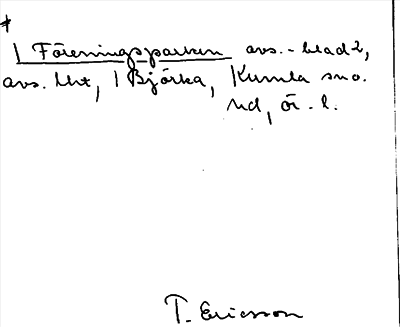 *
| Föreningsparken avs.-blad 2,
avs. lht, | Björka, Kumla sno.
nd, ör. l.
T. Ericsson